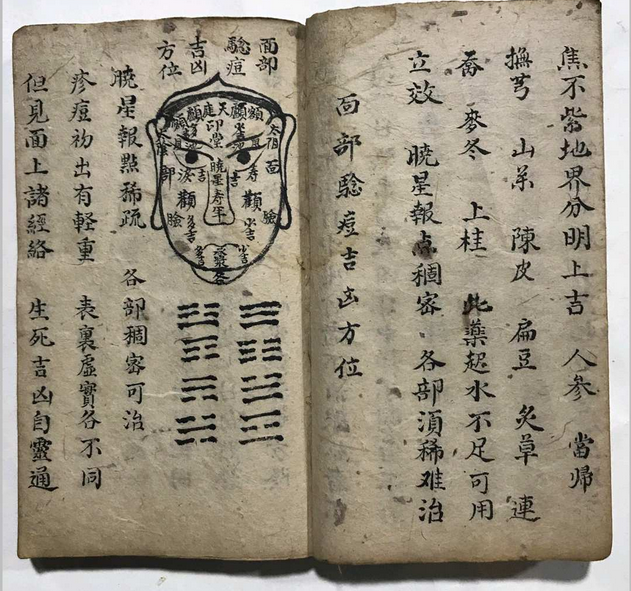 焦不紫地界分明上吉 人参 當帰
撫芎 山桼 陳皮 扁豆 炙草 連
喬 麥冬 上桂 此藥起水不足可用
立效 曉星報点稠密 各部須稀难治
面部驗痘吉凶方位
面部
驗痘
吉凶
方位
天庭
印堂
曉星
壽年
顴
顴
吉
吉
多吉
小吉
曉星報點稀疏 各部稠密可治
疹痘初出有軽重 表裏虛實各不同
但見面上諸經絡 生死吉凶自靈通